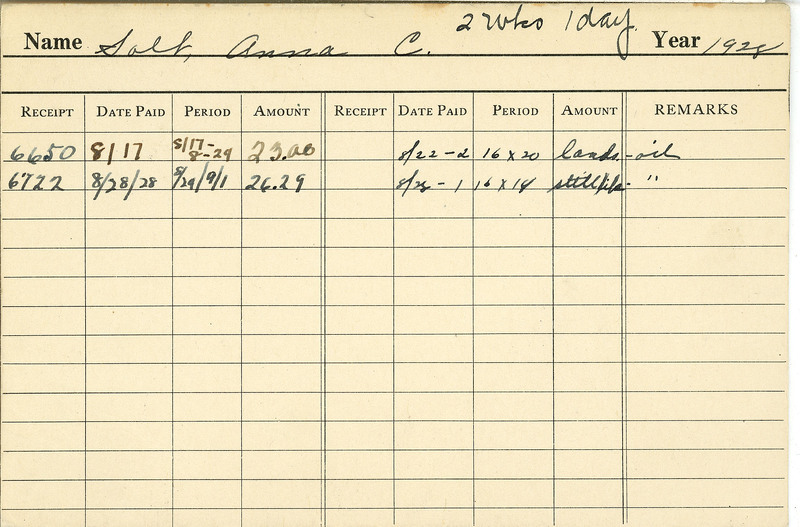 2 wks 1 day.
Name Solt, Anna C. Year 1928
RECEIPT DATE PAID PERIOD AMOUNT RECEIPT DATE PAID PERIOD AMOUNT REMARKS
6650 8/17 8/17-8-29 23.00 8/22-2 16 x 20 lands.-oil
6722 8/28/28 8/29/9/1 26.29 8/28-1 16 x 18 still life- "